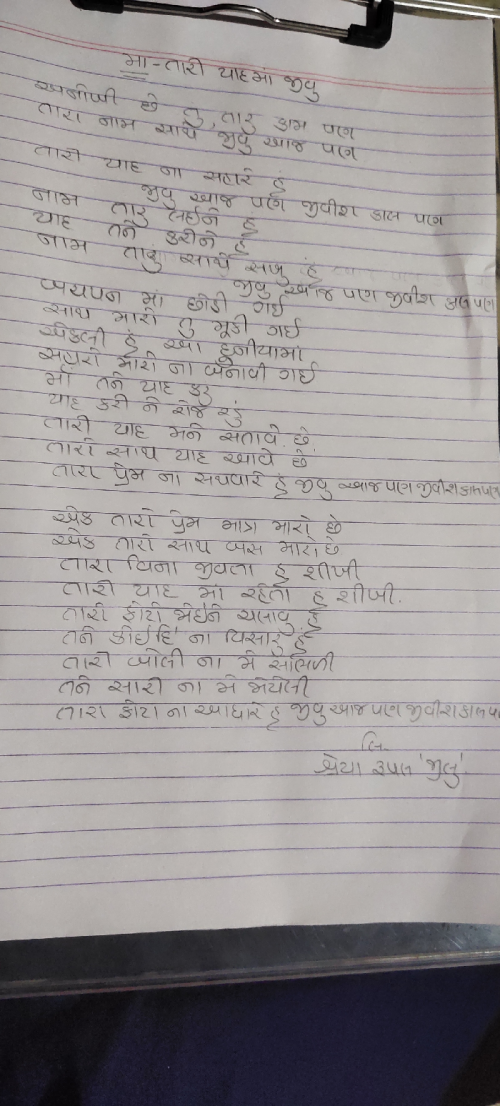 મા - તારી યાદમાં જીવુ
અનોખી છે તુ, તારુ કામ પણ
તારા નામ સાથે જીવુ આજ પણ
તારી યાદ ના સહારે હું
જીવુ આજ પણ જીવીશ કાલ પણ
નામ તારુ લઈને હું
યાદ તને કરીને હું
નામ તારું સાથે રાખુ હું
જીવુ આજ પણ જીવીશ કાલ પણ
બચપન માં છોડી ગઈ
સાથ મારો તુ મૂકી ગઈ
એકલી હું આ દુનીયામાં
સહારો મારો ના બનાવી ગઈ
માઁ તને યાદ કરુ
યાદ કરી ને રોજ રડું
તારી યાદ મને સતાવે છે
તારો સાથ યાદ આવે છે
તારા પ્રેમ ના સથવારે હું જીવુ આજ પણ જીવીશ કાલ પણ
એક તારો પ્રેમ માત્ર મારો છે
એક તારો સાથ બસ મારો છે
તારા વિના જીવતા હુ શીખી
તારી યાદ માં રહેતા હુ શીખી.
તારી ફોટો જોઈને ચલાવુ હું
તને કોઈદિ' ના વિસારુ હું
તારી બોલી ના મે સાંભળી
તને સારી ના મે જોયેલી
તારા ફોટા ના આધારે હુ જીવુ આજ પણ જીવીશ કાલ પ
લિ.
શ્રેયા રૂપલ 'જીલુ'